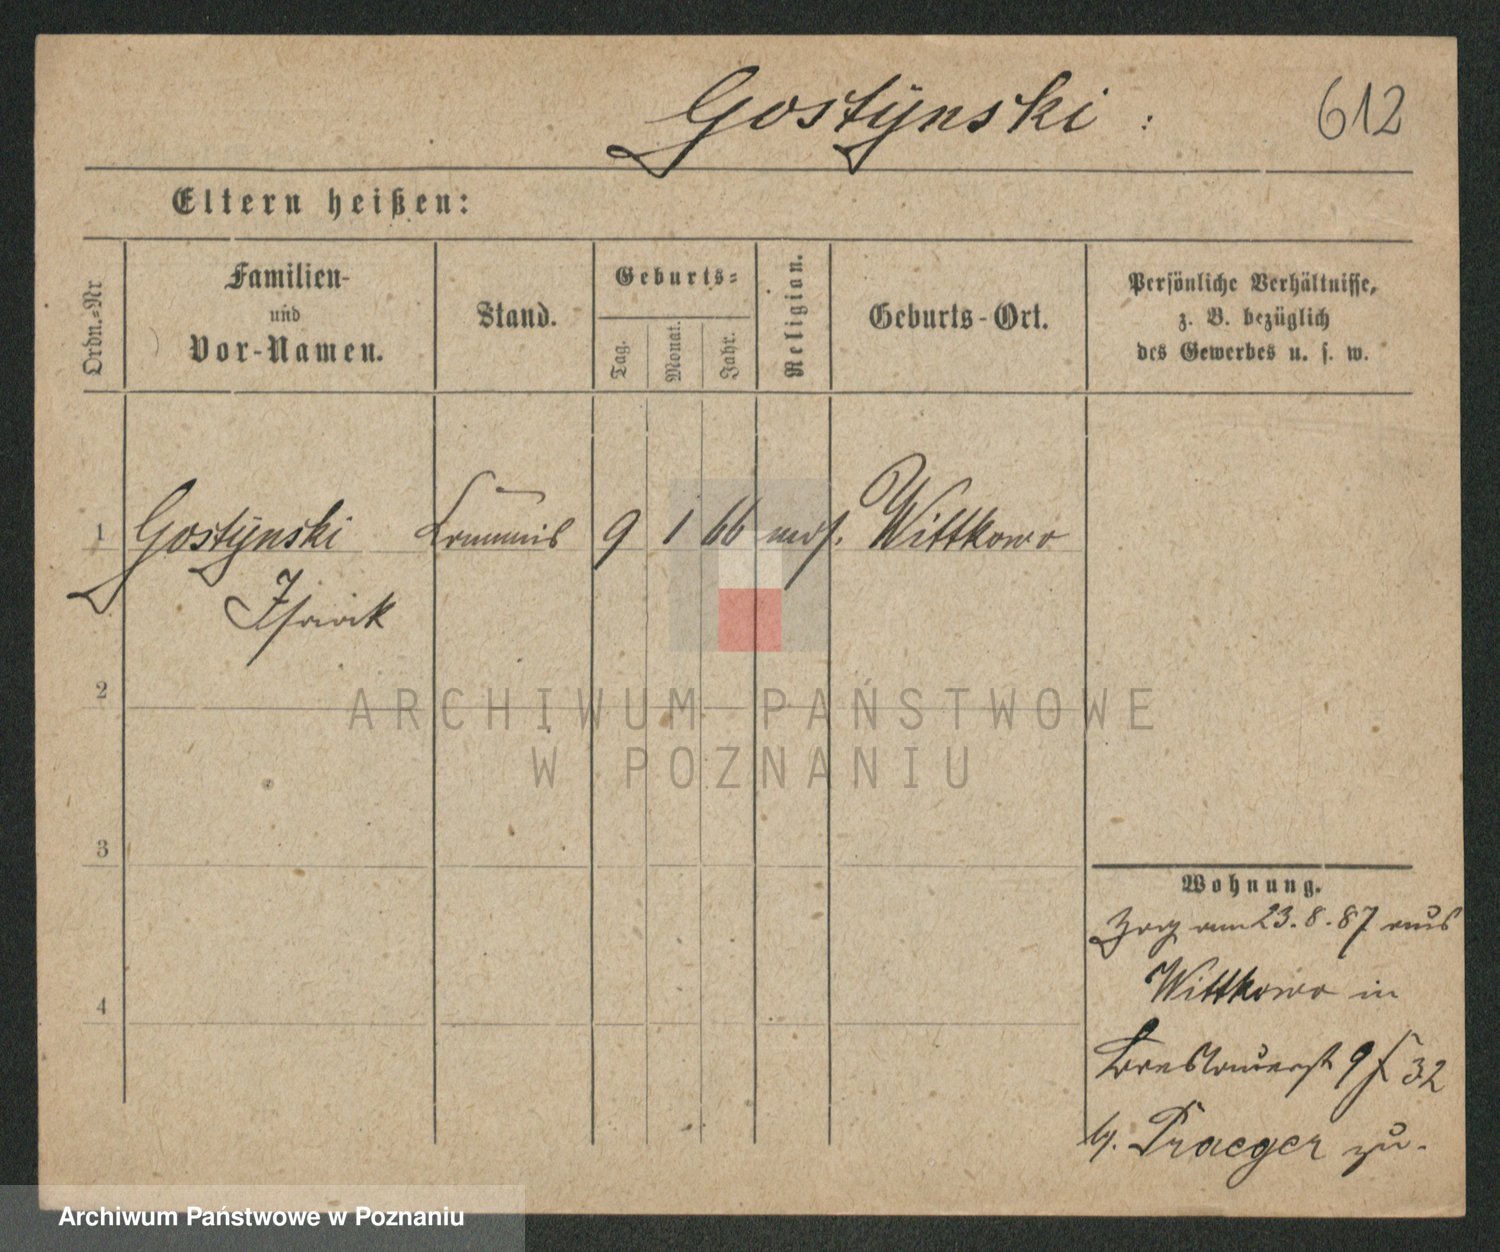 Gostÿnski :
612
Eltern heißen:
Ordn.-Nr
Familien-
und
Vor-Namen.
Stand.
Geburts-
Tag.
Monat.
Jahr.
Religion.
Geburts-Ort.
Persönliche Verhältnisse,
z. B. bezüglich
des Gewerbes u. s. w.
1 Gostÿnski Commis 9 1 66 mos. Wittkowo
Isaack
2
ARCHIWUM PAŃSTWOWE
W POZNANIU
3
Wohnung.
Zog am 23.8.87 aus
4
Wittkowo in
Breslauerst 9 32
b/. Praeger zu.
Archiwum Państwowe w Poznaniu